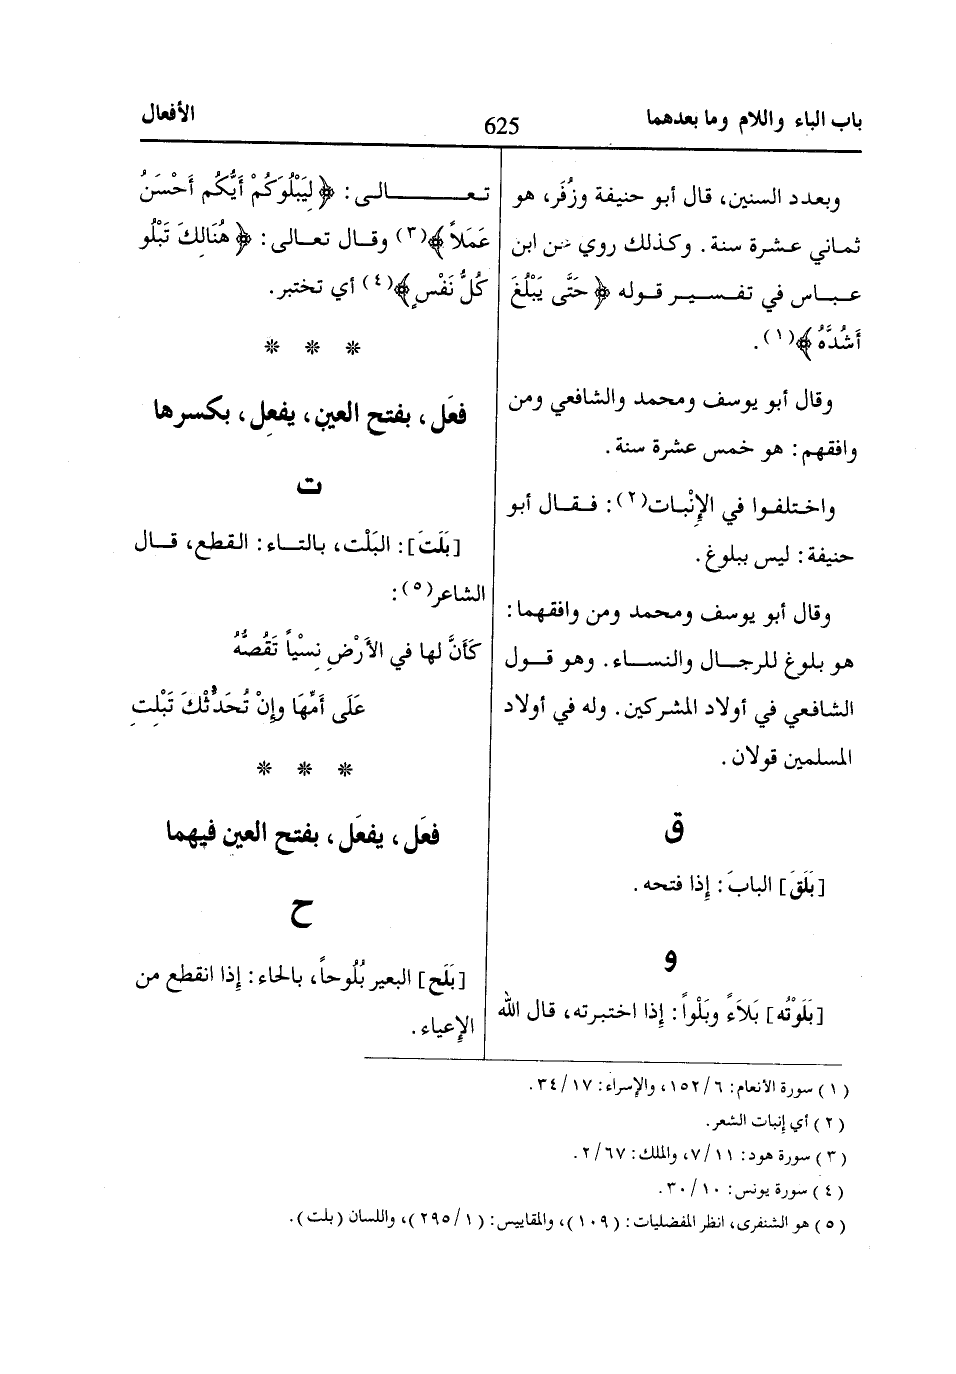 باب الباء واللام وما بعدهما
625
الأفعال
وبعدد السنين، قال أبو حنيفة وزُفَر، هو
ثماني عشرة سنة. وكذلك روي عن ابن
عباس في تفسير قوله ﴿حَتَّى يَبْلُغَ
أَشُدَّهُ﴾(١).
وقال أبو يوسف ومحمد والشافعي ومن
وافقهم: هو خمس عشرة سنة.
واختلفوا في الإِنْبات(٢): فقال أبو
حنيفة: ليس ببلوغ.
وقال أبو يوسف ومحمد ومن وافقهما:
هو بلوغ للرجال والنساء. وهو قول
الشافعي في أولاد المشركين. وله في أولاد
المسلمين قولان.
ق
[بَلَقَ] البابَ: إِذا فتحه.
و
[بَلَوْتُه] بَلاَءً وبَلْواً: إِذا اختبرته، قال الله
تعالى: ﴿لِيَبْلُوَكُمْ أَيُّكُم أَحْسَنُ
عَمَلاً﴾(٣) وقال تعالى: ﴿هُنَالِكَ تَبْلُو
كُلُّ نَفْسٍ﴾(٤) أي تختبر.
* * *
فعَل، بفتح العين، يفعِل، بكسرها
ت
[بَلَتَ]: البَلْت، بالتاء: القطع، قال
الشاعر(٥):
كَأَنَّ لها في الأَرْضِ نِسْياً تَقُصُّهُ
عَلَى أَمِّهَا وإِنْ تُحَدِّثْكَ تَبْلِتِ
* * *
فعَل، يفعَل، بفتح العين فيهما
ح
[بَلَح] البعير بُلُوحاً، بالحاء: إِذا انقطع من
الإِعياء.
(١) سورة الأنعام: ١٥٢/٦، والإسراء: ٣٤/١٧.
(٢) أي إنبات الشعر.
(٣) سورة هود: ٧/١١، والملك: ٢/٦٧.
(٤) سورة يونس: ٣٠/١٠.
(٥) هو الشنفرى، انظر المفضليات: (١٠٩)، والمقاييس: (٢٩٥/١)، واللسان (بلت).